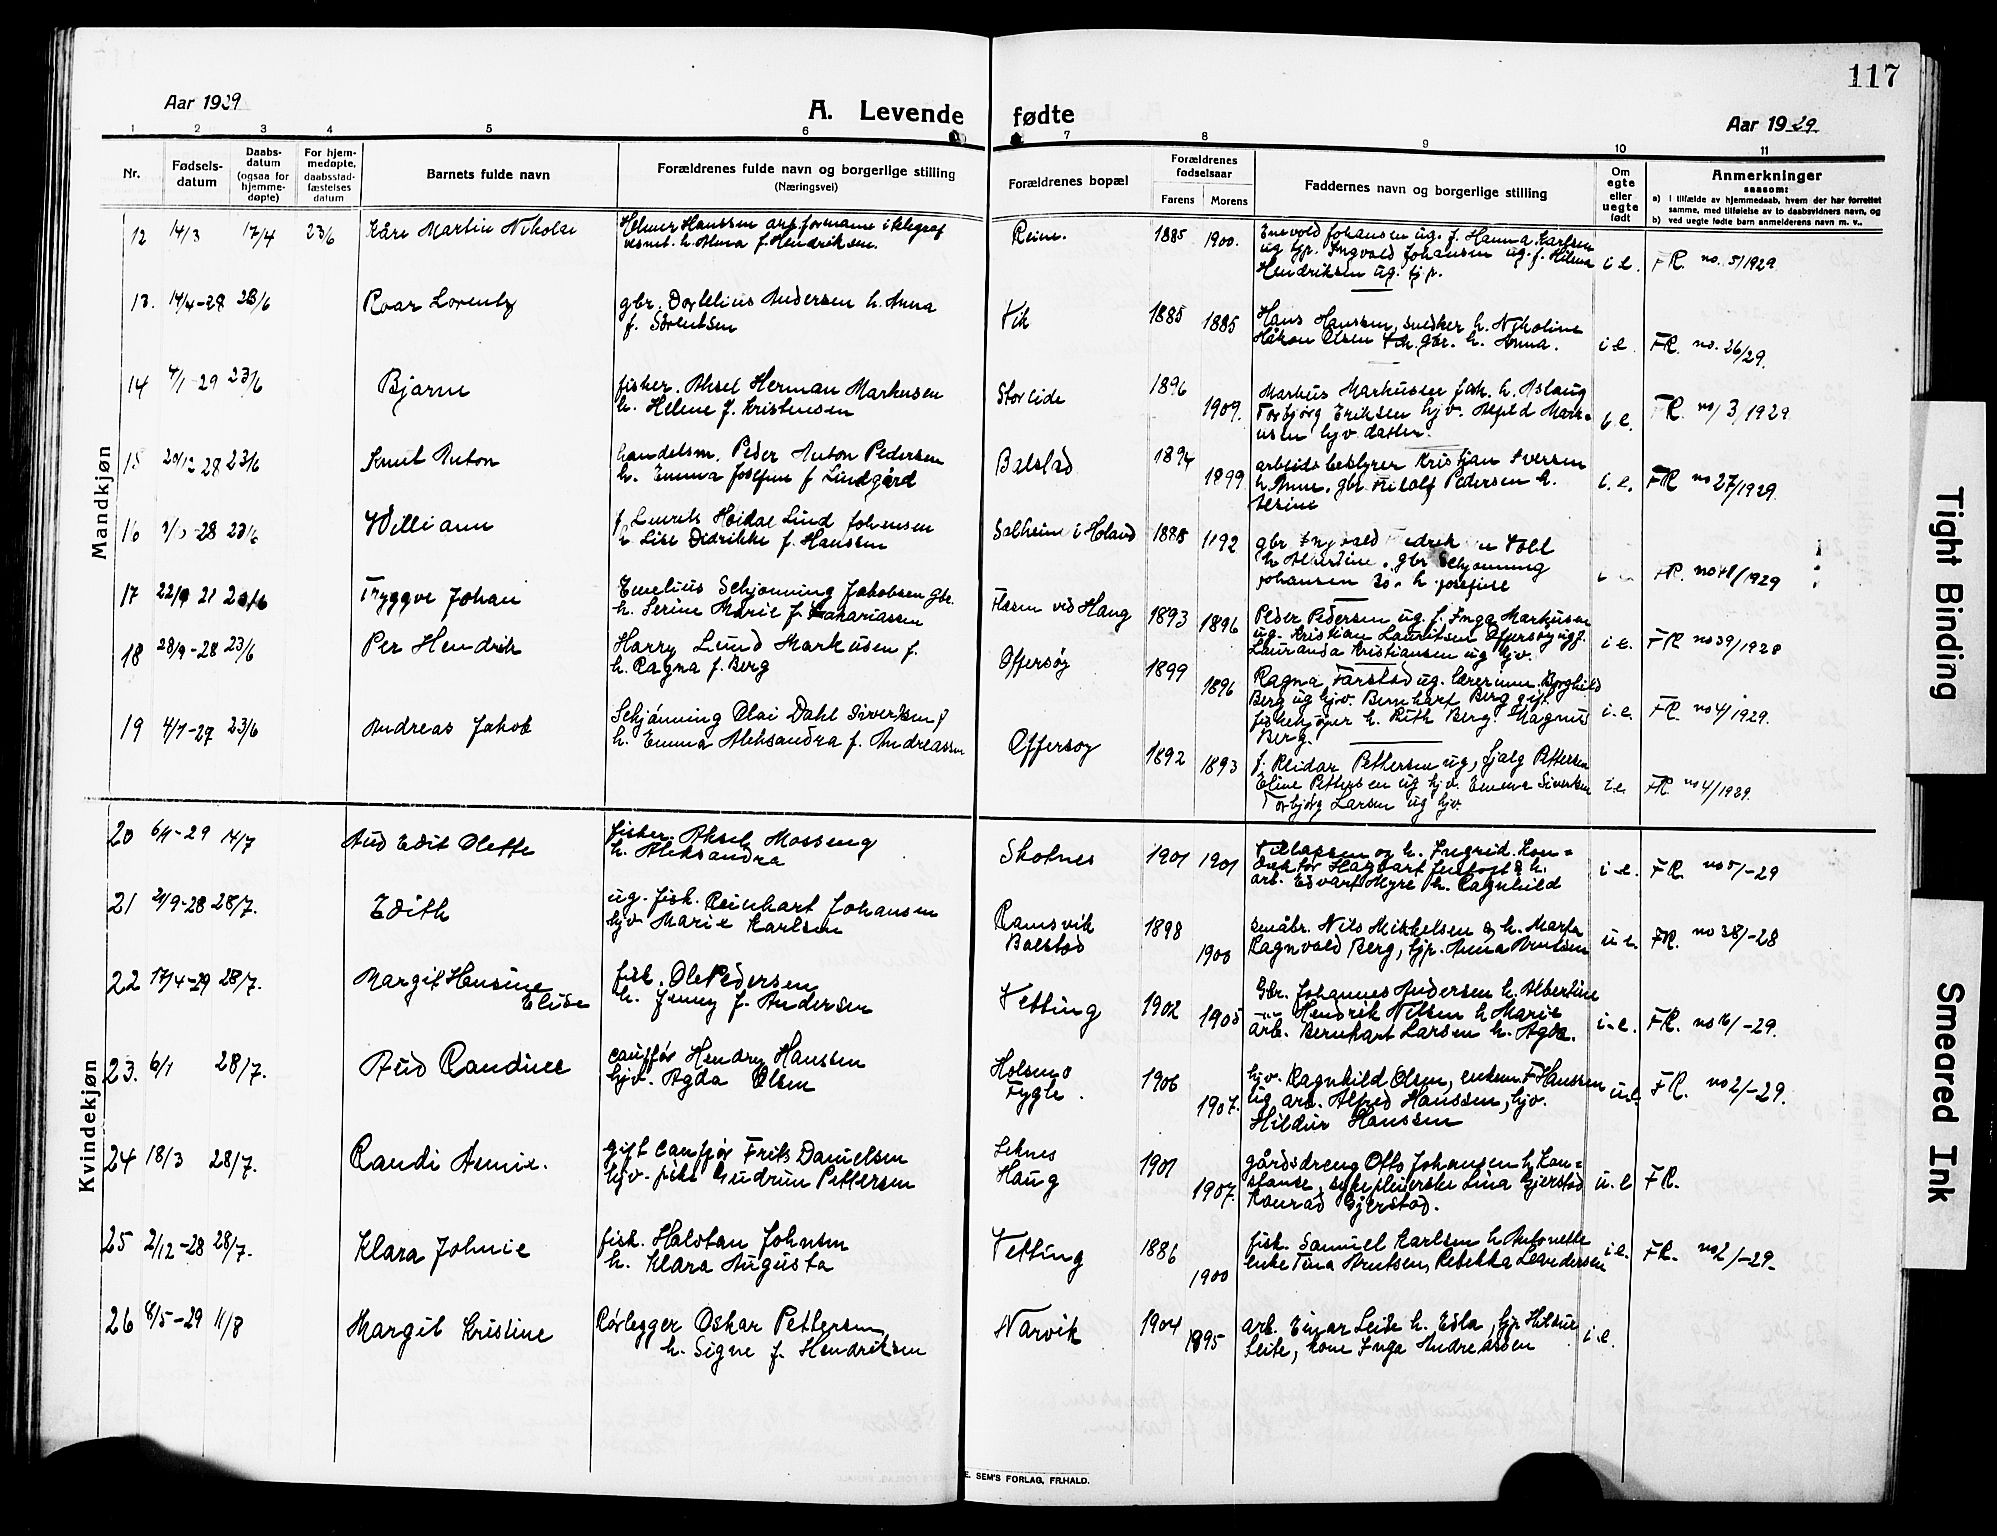 117
Aar 1929
A. Levende fødte
Aar 1929
1 2 3 4 5 6 7 8 9 10 11
Nr.
Fødsels-
datum
Daabs-
datum
(ogsaa for
hjemme-
døpte)
For hjem-
medøpte,
daabsstad-
fæstelses
datum
Barnets fulde navn
Forældrenes fulde navn og borgerlige stilling
(Næringsvei)
Forældrenes bopæl
Forældrenes
fødselsaar
Farens Morens
Faddernes navn og borgerlige stilling
Om
egte
eller
uegte
født
Anmerkninger
saasom:
a) I tilfælde av hjemmedaab, hvem der har forrettet
samme, med tilføielse av to daabsvidners navn, og
b) ved uegte fødte barn anmelderens navn m. v..
Mandkjøn
12 14/3 17/4 23/6 Kåre Martin Nikolai
Helmer Hanssen arb. formann i telegraf
vesnet. h. Alma f. Hendriksen.
Reine. 1885 1900.
Enevold Johansen ug. f. Hanna Karlsen
ug hjp. Ingvald Johansen ug. f. Hilma
Hendriksen ug. hjp.
i e. FR. no. 5/1929
13. 14/4-28 23/6 Roar Lorentz
gbr. Dortelius Andersen h. Anna
f. Sørentsen
Vik 1885 1885
Hans Hanssen, snedker h. Nikoline
Håkon Olsen Vik gbr. h. Anna.
i e. FR. no. 26/29.
14 4/1-29 23/6 Bjarne
fisker. Aksel Herman Markusen
h. Helene f. Kristensen
Storeide 1896 1909.
Markus Markussen fisk. h. Aslaug
Torbjørg Eriksen hjv. Alfild Mark-
usen hjv. datter.
i e. FR. no 3/1929
15 20/12 28 23/6 Knut Anton
handelsm. Peder Anton Pedersen
h. Emma Josefine f Lindgård
Balstad 1894 1899
arbeidsbestyrer Kristjan Iversen
h. Anne, gbr. Fritolf Pedersen h.
Alsine
i. e. FR no 27/1929.
16 28 23/6 William
f. Lauritz Hoidal Lind Johansen
h. Lise Didrikke f. Hanssen
Solheim i Holand 1888 1192
gbr Ingvald
h Albertine, gbr Schjønning
Johansen h. Josefine
FR. no 48/1929
17 22/9 21 23/6 Tryggve Johan
Emelius Schjønning Jakobsen gbr.
h. Serine Marie f. Zakariassen
Haug 1893 1896
Peder Pedersen ug. f. Inga Markusen
ug. Kristian Lauritsen Offersøy ug f.
Lauranda Kristiansen ug hjv.
i e. FR no 39/1928
18 28/9-28 23/6 Per Hendrik
Harry Lund Markusen f.
h. Ragna f. Berg
Offersøy 1899 1896
Ragna Farstad ug. lærerinne. Borghild
Berg ug hjv. Bernhart Berg gift.
fiskekjøper h. Ruth Berg. Magnus
Berg.
i. e. FR no 4/1929.
19 4/1-29 23/6 Andreas Jakob
Schjønning Olai Dahl Sivertsen f
h. Emma Aleksandra f. Andreassen
Offersøy 1892 1893
f. Reidar Pettersen ug, Hjalg Pettersen
Eline Pettersen ug hjv. Emma Sivertsen
Torbjørg Larsen ug hjv.
i. e FR. no 4/1929.
Kvindekjøn
20 6/4-29 14/7 Aud Edit Olette
fisker. Aksel Mosseng
h. Aleksandra
Skotnes 1901 1901
Tillassen og h. Ingrid. Kon=
duktør Hagbart Jentoft & h.
arb. Edvart Myre h. Ragnhild
i-e. FR. no 5/-29
21 21/9-28 28/7. Edith
ug. fisk. Reinhart Johansen
hjv Marie Karlsen
Ramsvik
Balstad
1898 1900
småbr. Nils Mikkelsen og h. Marta
Ragnvald Berg, hjp. Anna Knutsen
u e. FR. no 38/-28
22 17/4-29 28/7. Margit Hansine
Elise
fisk. Ole Pedersen
h. Jenny f. Andersen
Vetting 1902 1905
Gbr. Johannes Andersen h. Albertine
-"- Hendrik Nilsen h. Marie
arb. Bernhart Larsen h. Agda.
i-e. FR. no 16/-29.
23. 6/1 28/7. Aud Randine
cauffør Hendry Hanssen
hjv. Agda Olsen
Holsmo
Fygle.
1906 1907.
hjv. Ragnhild Olsen, enkem. F Hanssen
ug arb. Alfred Hanssen, hjv.
Hildur Hanssen
u.e. FR. no 2/-29.
24 18/3 28/7. Randi Annie.
gift cauffør Frits Danielsen
hjv. pike Gudrun Pettersen
Leknes
Haug
1901 1907.
gårdsdreng Otto Johansen h. Kon=
stanse, sykepleierske Lina Gjerstad
Konrad Gjerstad.
u. e FR.
25 2/12-28 28/7. Klara Johnie
fisk. Halvtan Johnsen
h. Klara Augusta
Vetting 1886 1900
fisk. Samuel Karlsen h Antonette
enke Tina Knutsen, Rebekka Leonardsen
i e. FR. no 2/-29.
26 8/5-29 11/8 Margit Kristine
Rørlegger Oskar Pettersen,
h. Signe f. Hendriksen
Narvik 1904 1895
arb. Einar Leite h. Edla, hjp Hilsine
Leite, kone Inga Andreassen
i. e.
E. SEM'S FORLAG, FR.HALD.
Tight Binding
Smeared Ink